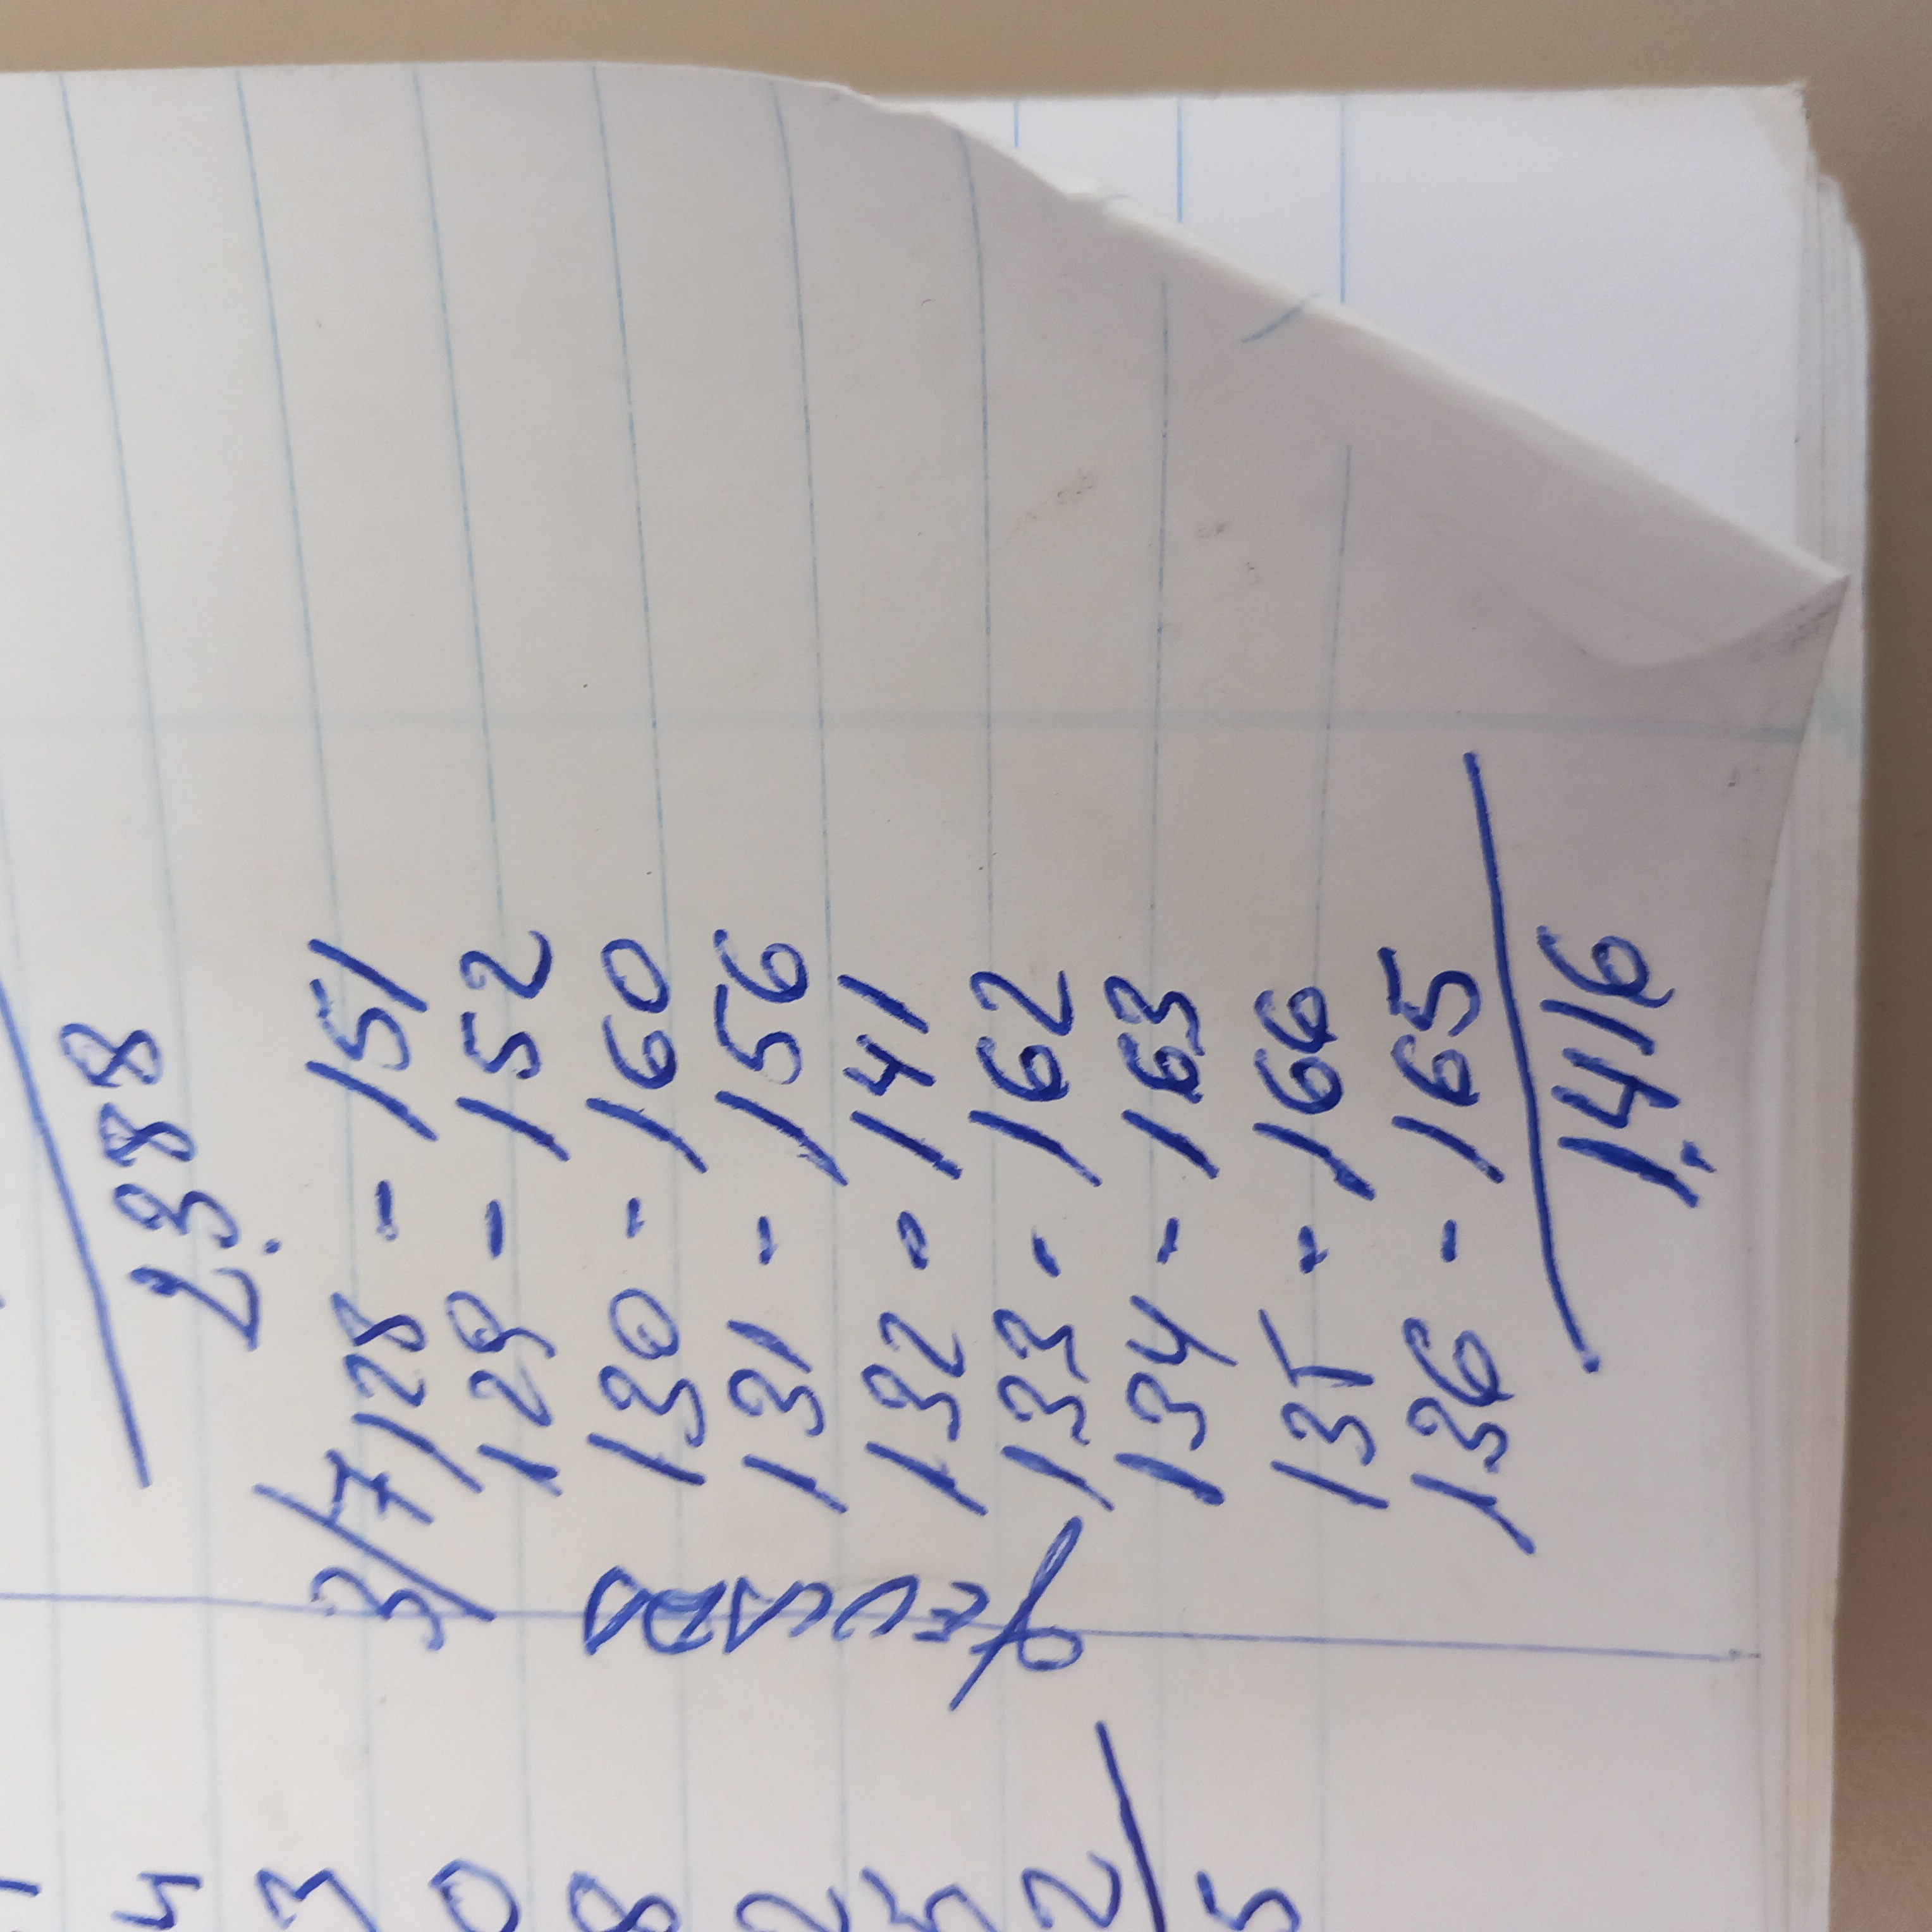 2.388
3/7 128 - 151
129 - 152
130 - 160
131 - 156
132 - 141
133 - 162
134 - 163
135 - 166
136 - 165
1.416